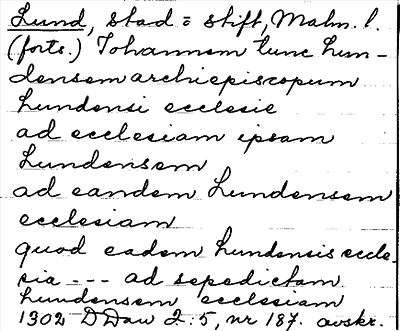 Lund, stad = stift, Malm. l.
(forts.) Johannem tunc Lun-
densem archiepiscopum
Lundensi ecclesie
ad ecclesiam ipsam
Lundensem
ad eandem Lundensem
ecclesiam
quod eadem Lundensis eccle-
sia --- ad sepedictam
Lundensem ecclesiam
1302 DDan 2:5, nr 187. avskr.